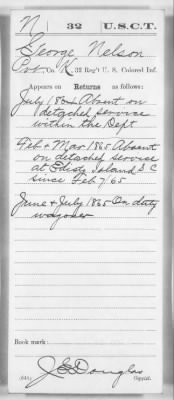 N 32 U.S.C.T.
George Nelson
Pvt., Co. K, 32 Reg't U. S. Colored Inf.
Appears on Returns as follows:
July 1864 Absent on
detached service
within the Dept
Feb & Mar 1865 Absent
on detached service
at Edisto Island S C
since Feb 7/65
June & July 1865 On duty
wagoner
Book mark:
J E Douglas
Copyist.